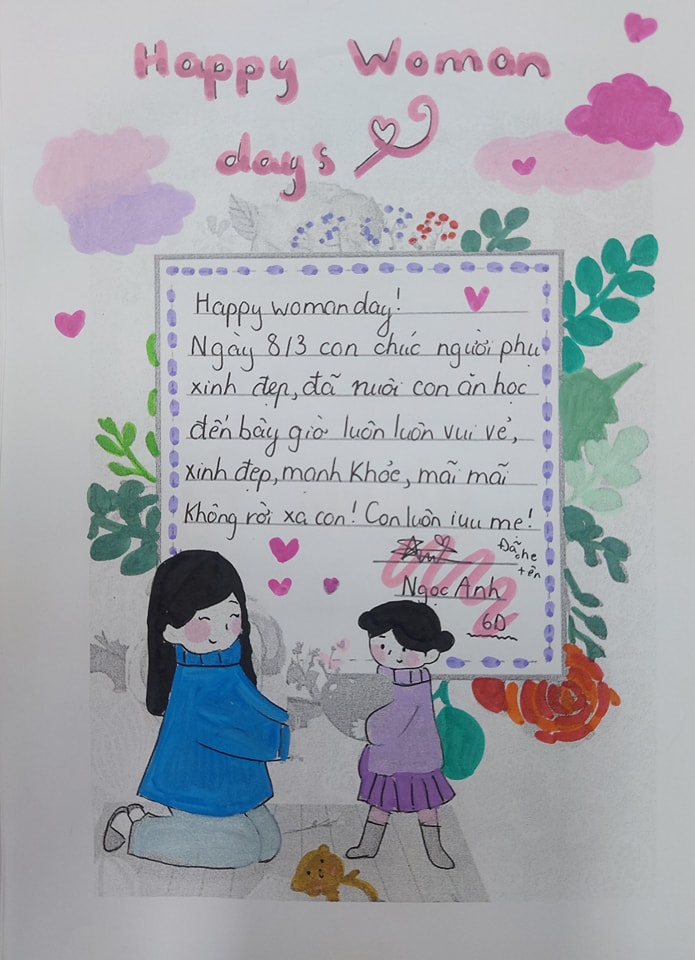 Happy Woman
days
Happy woman day!
Ngày 8/3 con chúc người phụ
xinh đẹp, đã nuôi con ăn học
đến bây giờ luôn luôn vui vẻ,
xinh đẹp, mạnh khỏe, mãi mãi
không rời xa con! Con luôn iuu mẹ!
Đã che
tên
Ngọc Anh
6D